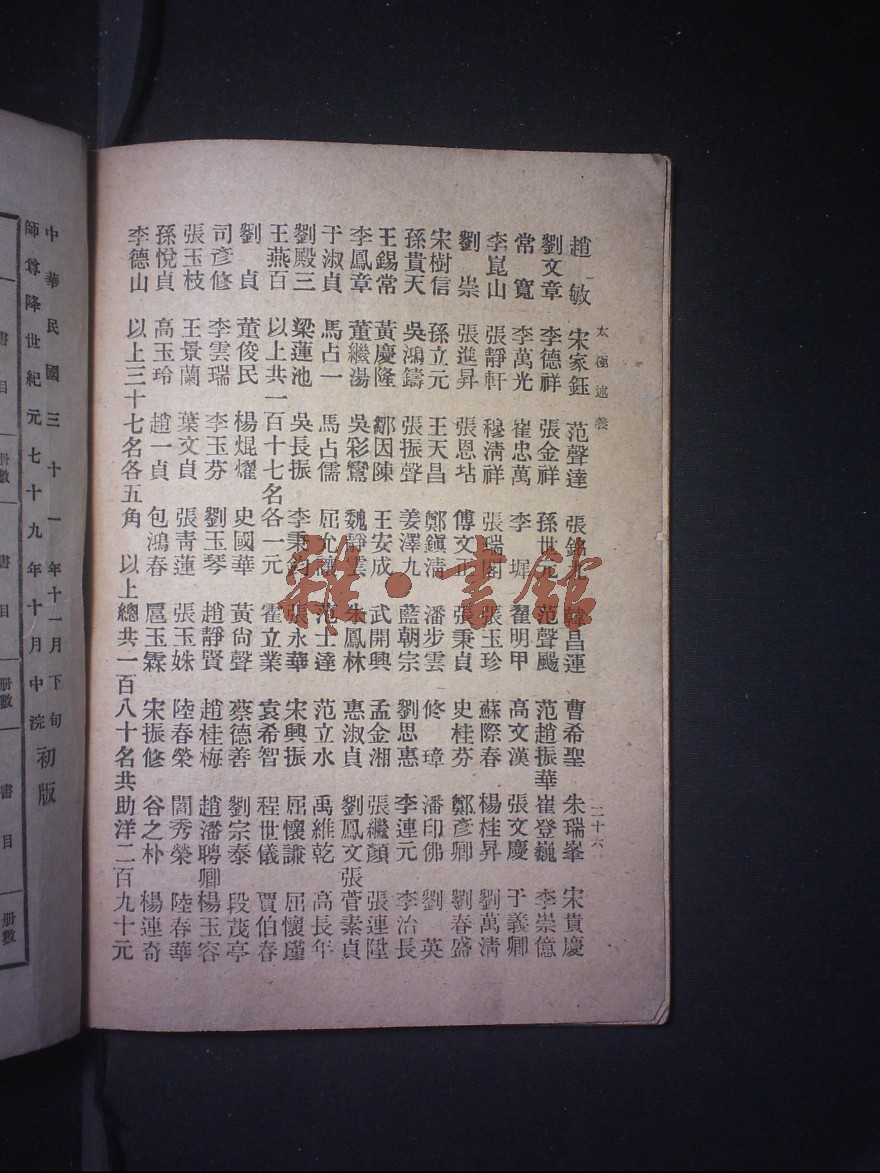 太極述義 三十六
趙敏 宋家鈺 范聲達 韓昌運 曹希聖 朱瑞峯 宋貴慶
劉文章 李德祥 張金祥 孫世元 范聲颺 范趙振華 崔登巍 李崇億
常寬 李萬光 崔忠萬 李墀 翟明甲 高文漢 張文慶 于義卿
李崑山 張靜軒 穆清祥 張瑞閣 張玉珍 蘇際春 楊桂昇 劉萬淸
劉崇 張進昇 張恩坫 傅文正 張秉貞 史桂芬 鄭彥卿 劉春盛
宋樹信 孫立元 王天昌 鄭鎭淸 潘步雲 修璋 潘印佛 劉英
孫貴天 吳鴻鑄 張振聲 姜澤九 藍朝宗 劉思惠 李連元 李治長
王錫常 黃慶隆 鄒因陳 王安成 武開興 孟金湘 張繼顏 張連陞
李鳳章 董繼湯 吳彩鸞 魏靜雲 朱鳳林 惠淑貞 劉鳳文張 菅素貞
于淑貞 馬占一 馬占儒 屈允謙 范士達 范立水 禹維乾 高長年
劉殿三 梁蓮池 吳長振 李秉鈞 張永華 宋興振 屈懷謙 屈懷瑾
王燕百 以上共一百十七名各一元 霍立業 袁希智 程世儀 賈伯春
劉貞 董俊民 楊焜燿 史國華 黃尙聲 蔡德善 劉宗泰 段茂亭
司彥修 李雲瑞 李玉芬 劉玉琴 趙靜賢 趙桂梅 趙潘聘卿 楊玉容
張玉枝 王景蘭 葉文貞 張靑蓮 張玉姝 陸春榮 閻秀榮 陸春華
孫悅貞 高玉玲 趙一貞 包鴻春 扈玉霖 宋振修 谷之朴 楊連奇
李德山 以上三十七名各五角 以上總共一百八十名共助洋二百九十元
中華民國三十一年十一月下旬
師尊降世紀元七十九年十月中浣
初版
書目 册數 書目 册數 書目 册數
雜·書館